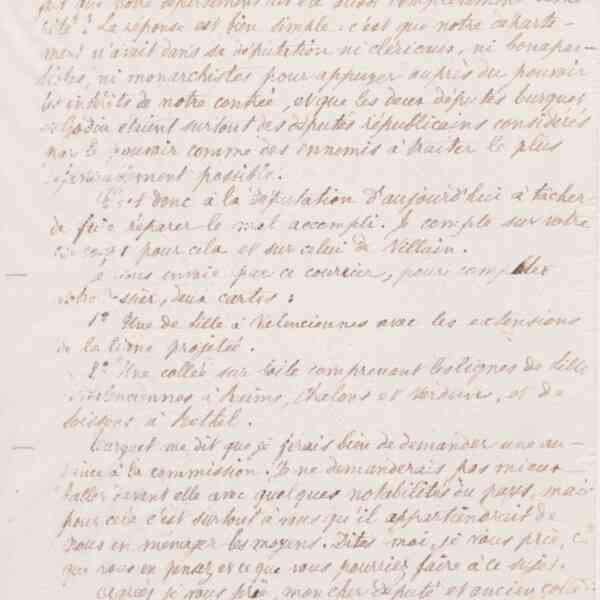 que notre département ait été aussi complètement
? La réponse est bien simple. c'est que notre départe-
ment n'avait dans sa députation ni cléricaux, ni bonapar-
tistes, ni monarchistes pour appuyer auprès du pouvoir
les intérêts de notre contrée, et que les deux députés
et Godin étaient surtout des députés républicains considérés
par le pouvoir comme des ennemis à traiter le plus
possible.
C'est donc à la députation d'aujourd'hui à tâcher
de faire réparer le mal accompli. Je compte sur votre
concours pour cela et sur celui de Villain.
Je vous envoie par ce courrier, pour compléter
votre dossier, deux cartes :
1º Une de Lille à Valenciennes avec les extensions
de la ligne projetée.
2º Une collée sur toile comprenant les lignes de Lille
Valenciennes à Reims, Chalons et Verdun, et de
Soissons à Rethel.
me dit que je ferais bien de demander une au-
dience à la commission. Je ne demanderais pas mieux
d'aller devant elle avec quelques notabilités du pays, mais
pour cela c'est surtout à vous qu'il appartiendrait de
nous en ménager les moyens. Dites moi, je vous prie, ce
que vous en pensez et ce que vous pourriez faire à ce sujet.
Agréez je vous prie, mon cher député et ancien